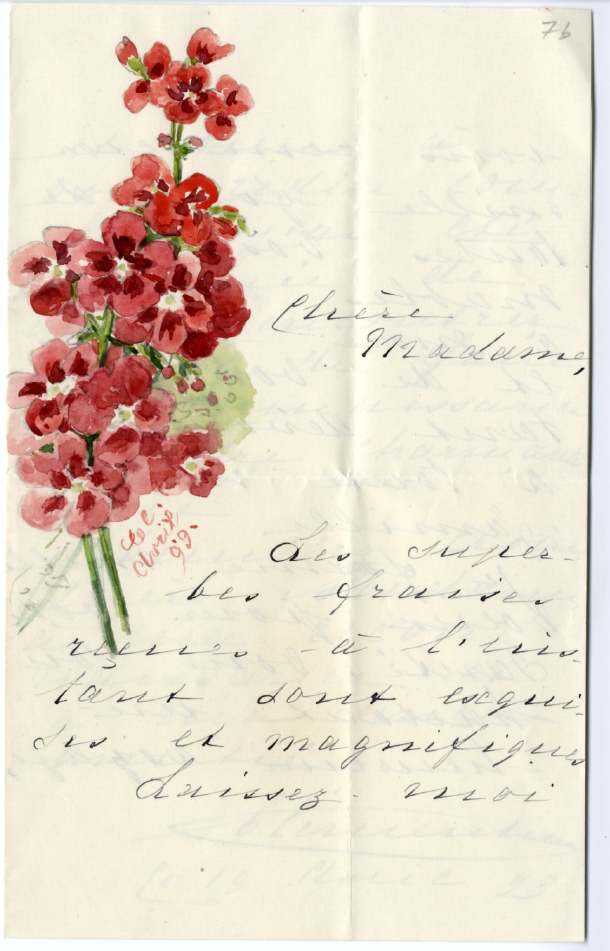 76
Chère
Madame,
Les super-
bes fraises
reçues à l'ins-
tant sont exqui-
ses et magnifiques
Laissez-moi
99-